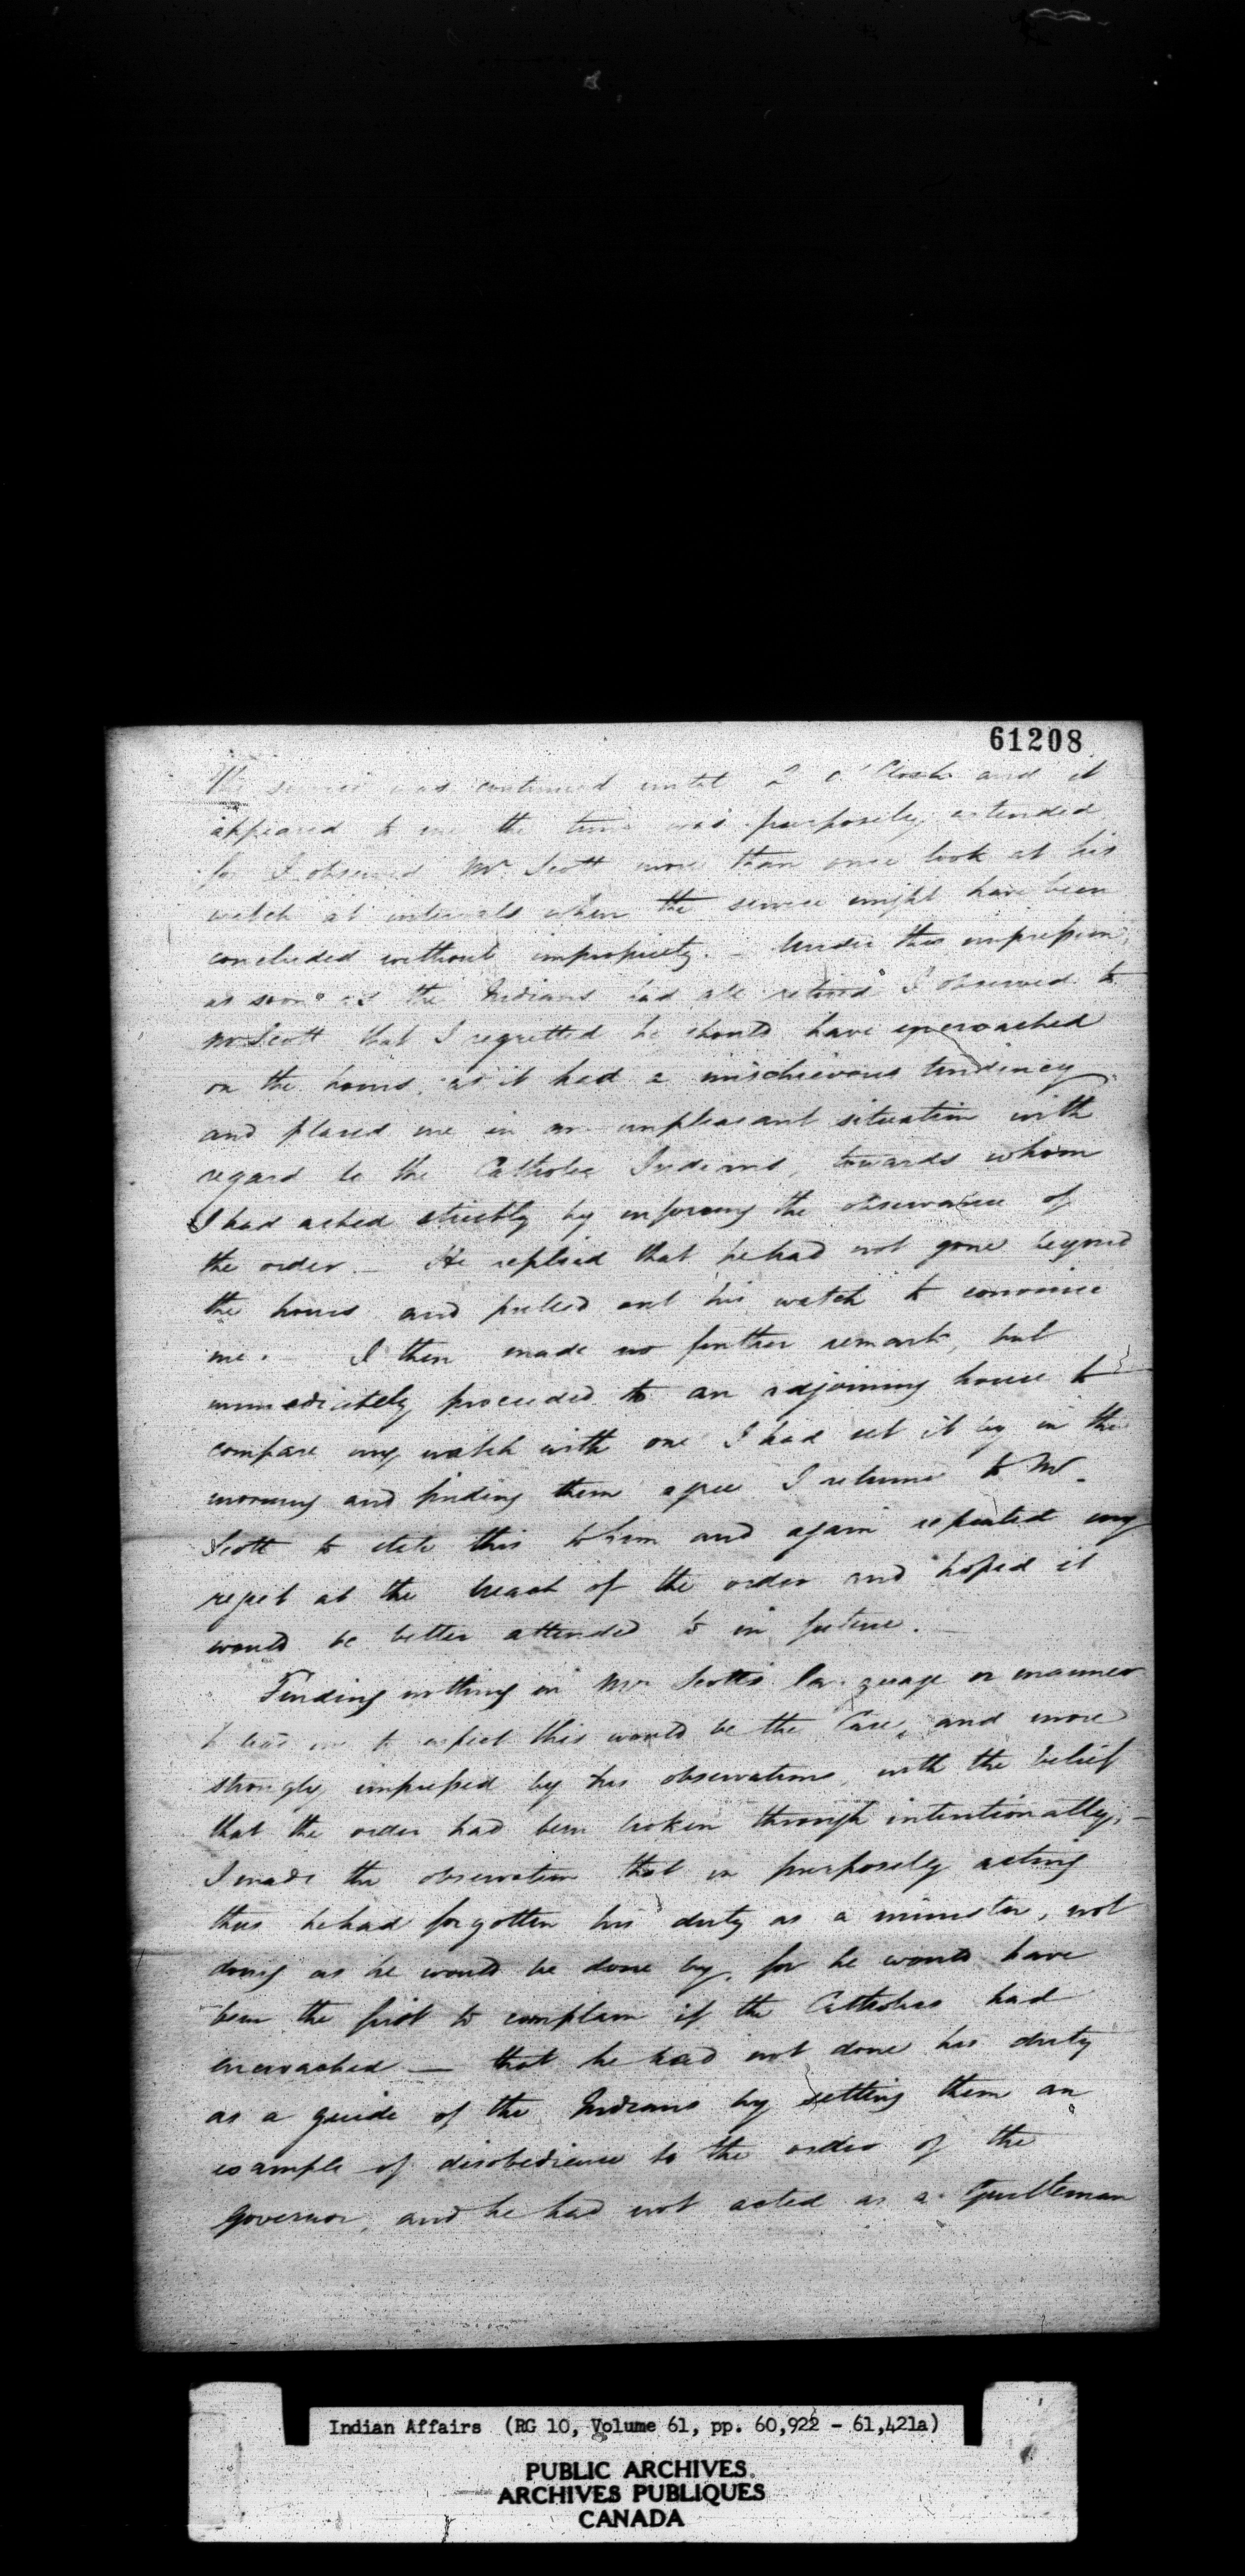 61208
The service was continued until 2 o'Clock and it
appeared to me the time was purposely extended
for I observed Mr Scott more than once look at his
watch at intervals when the service might have been
concluded without impropriety. - Under this impression,
as soon as the Indians had all retired I observed to
Mr Scott that I regretted he should have encroached
on the hours, as it had a mischievous tendency
and placed me in an unpleasant situation with
regard to the Catholic Indians, towards whom
I had acted strictly by enforcing the observance of
the order. - He replied that he had not gone beyond
the hours and pulled out his watch to convince
me. - I then made no further remark, but
immediately proceeded to an adjoining house to
compare my watch with one I had set it by in the
morning and finding them agree I returned to Mr.
Scott to state this to him and again repeated my
regret at the breach of the order and hoped it
would be better attended to in future. -
Finding nothing in Mr Scott's language or manner
to lead me to expect this would be the Case, and more
strongly impressed by his observations, with the belief
that the order had been broken through intentionally, -
I made the observation that in purposely acting
thus he had forgotten his duty as a minister, not
doing as he would be done by, for he would have
been the first to complain if the Catholics had
encroached - that he had not done his duty
as a guide of the Indians by setting them an
example of disobedience to the order of the
Governor, and he had not acted as a Gentleman
Indian Affairs (RG 10, Volume 61, pp. 60,922 - 61,421a)
PUBLIC ARCHIVES
ARCHIVES PUBLIQUES
CANADA